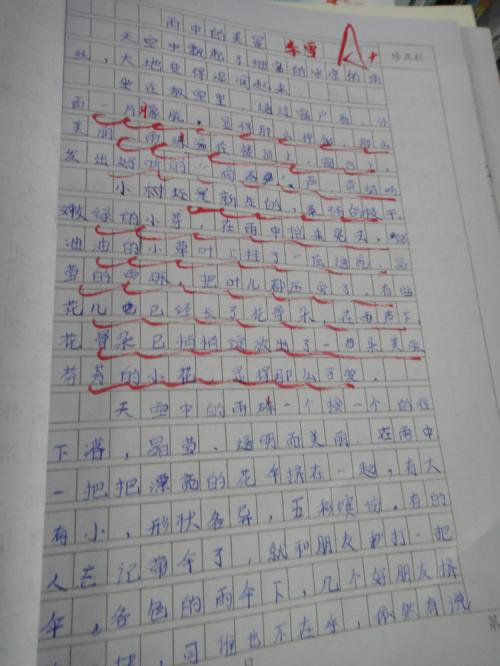 雨中的美景
李雪 A+
天空中飘起了细密的冰凉的雨
丝，大地变得湿润起来
坐在教室里，透过窗户看，外
面一片朦胧，显得那么神秘，那么
美丽，雨珠落在楼顶上，窗台上，
发出好听的“ ”声，真好听
小树还是新生的，柔弱的枝干，
嫩绿的小芽，在雨中摇来晃去。绿
油油的小草叶上挂了一层透亮、晶
莹的雨珠，把叶儿都压弯了。有些
花儿也已经长了花骨朵，在雨声下
花骨朵已悄悄绽放出了一朵朵美丽
芬芳的小花，显得那么可爱。
天空中的雨珠一个接一个的往
下落，晶莹、透明而美丽。在雨中
一把把漂亮的花伞挤在一起，有大
有小，形状各异，五彩缤纷。有的
人忘记带伞了，就和朋友打一把
伞，各色的雨伞下，几个好朋友挤
，可谁也不在乎，依然有说